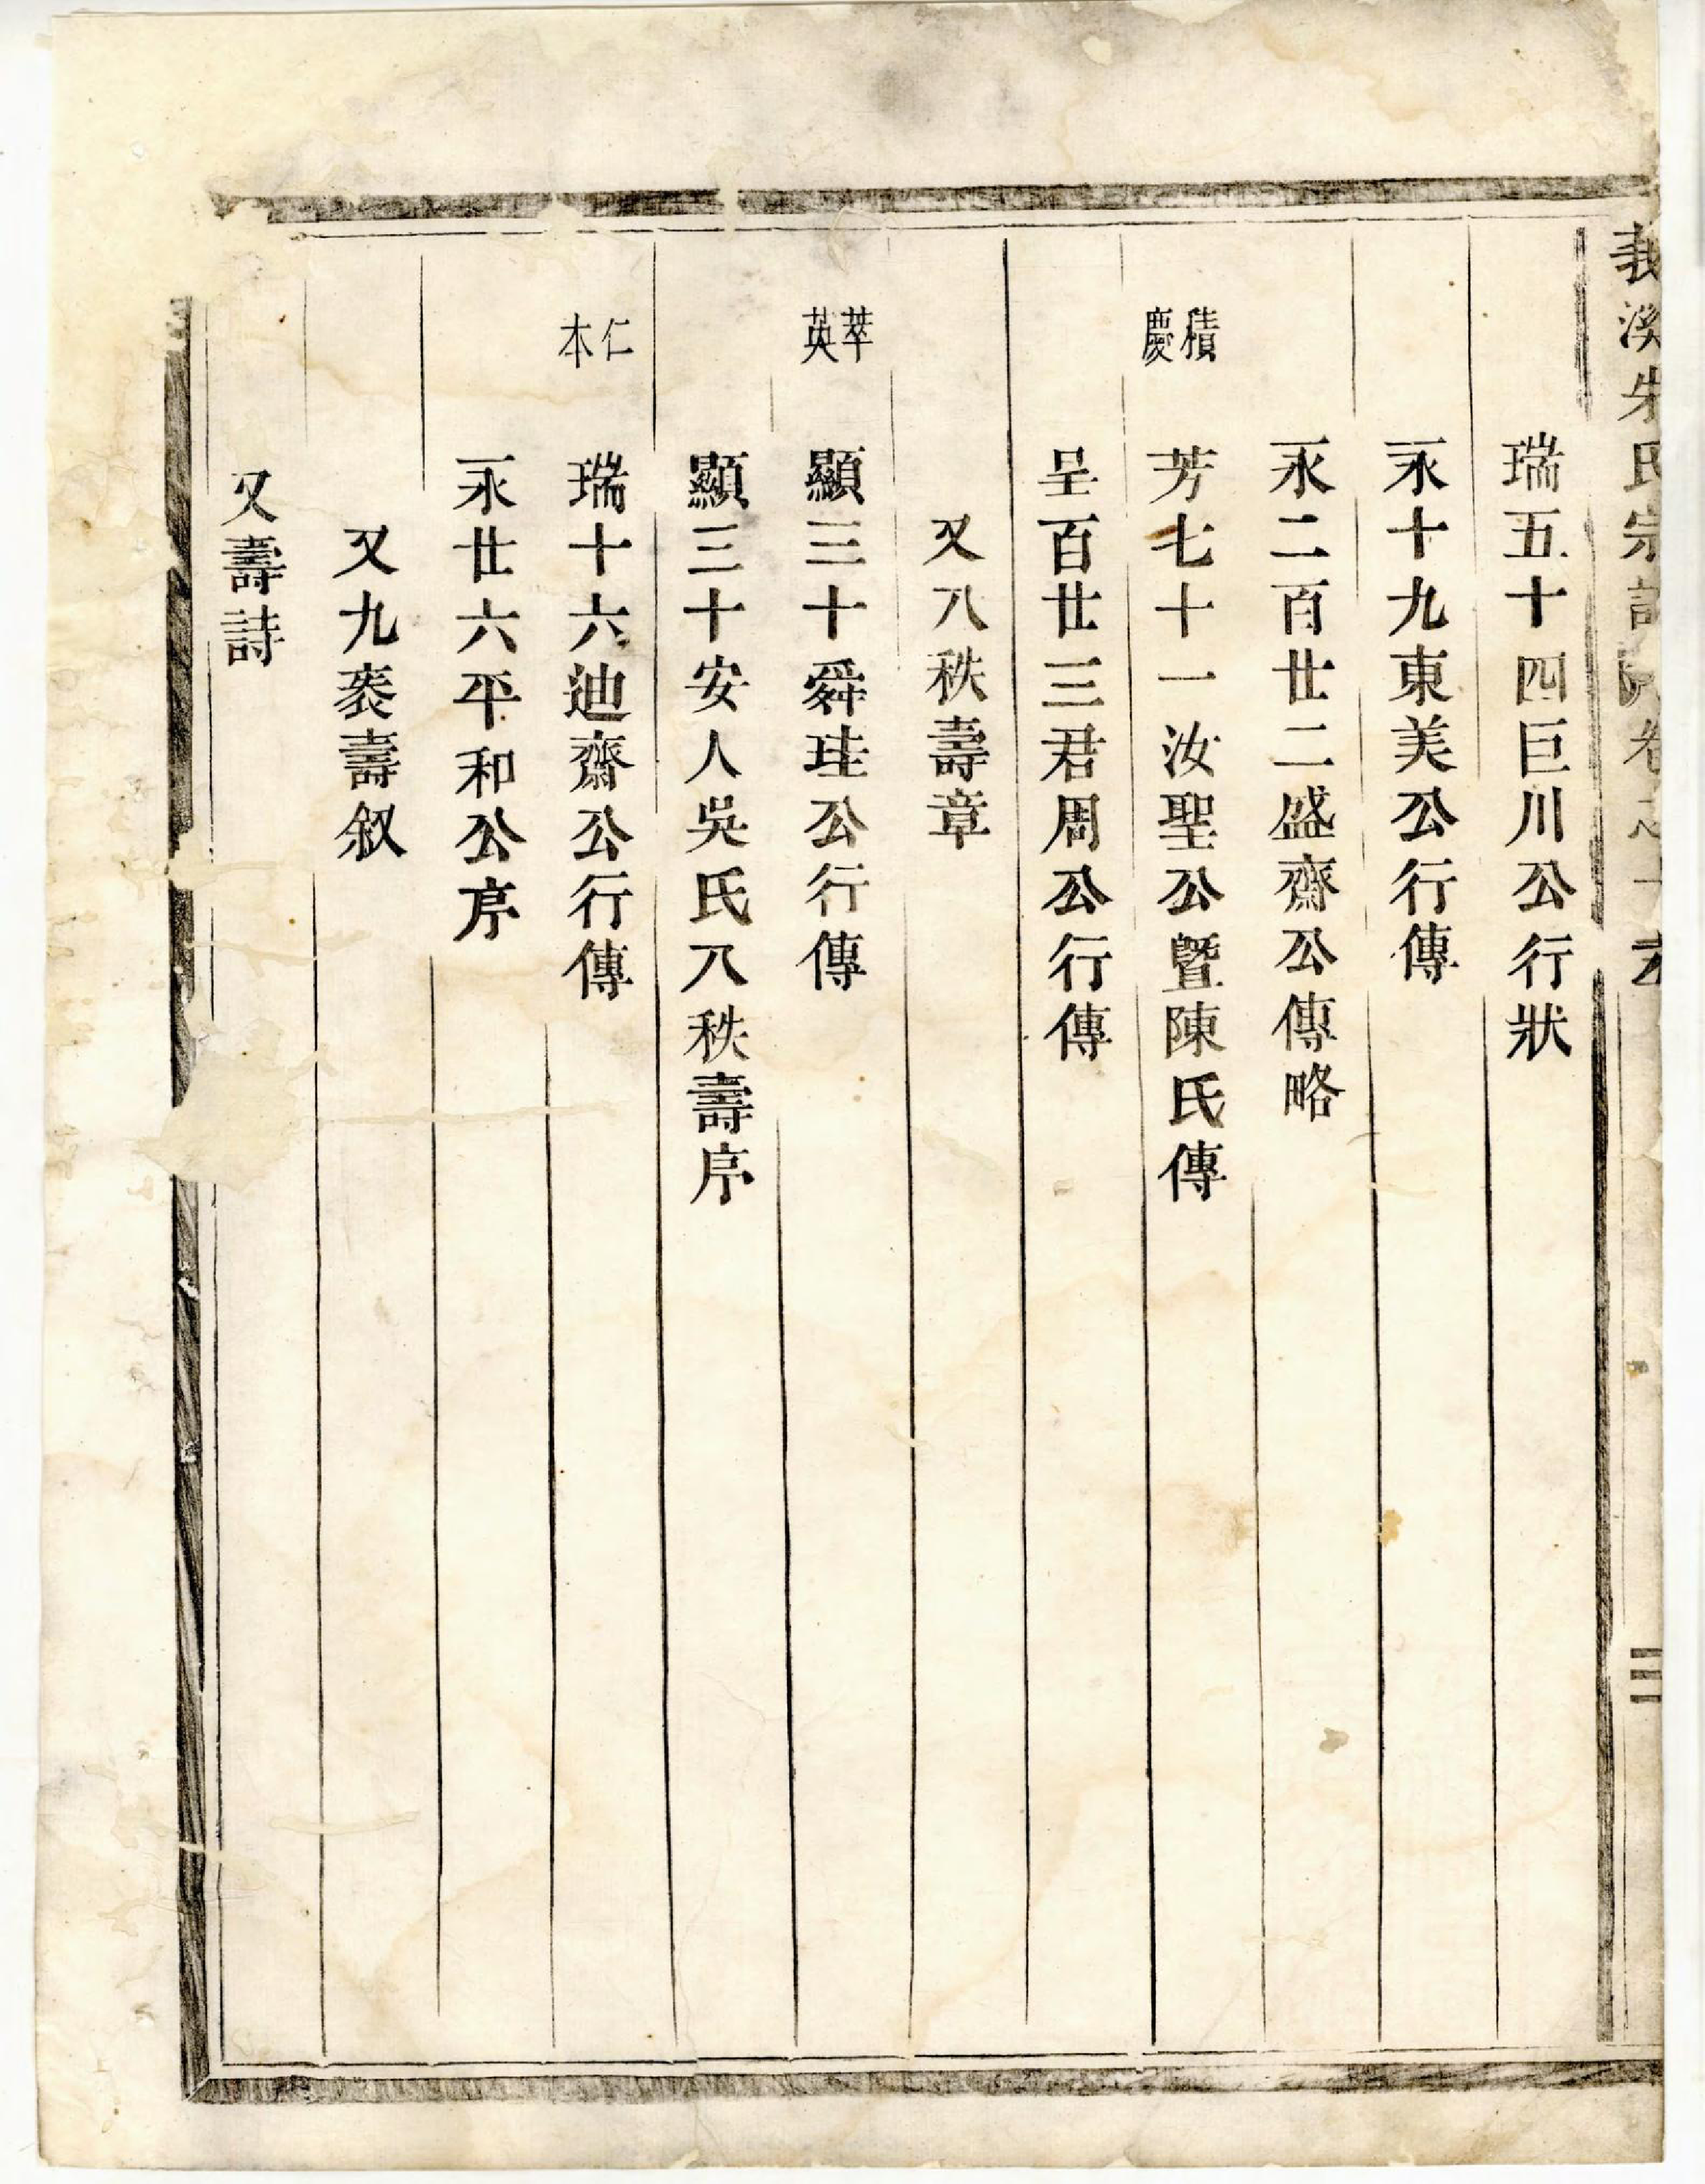 義溪朱氏宗譜 卷之十
瑞五十四巨川公行狀
永十九東美公行傳
永二百廿二盛齋公傳略
積慶 芳七十一汝聖公曁陳氏傳
呈百廿三君周公行傳
又八秩壽章
萃英 顯三十舜珪公行傳
顯三十安人吳氏八秩壽序
仁本 瑞十六迪齋公行傳
永廿六平和公序
又九袠壽叙
又壽詩